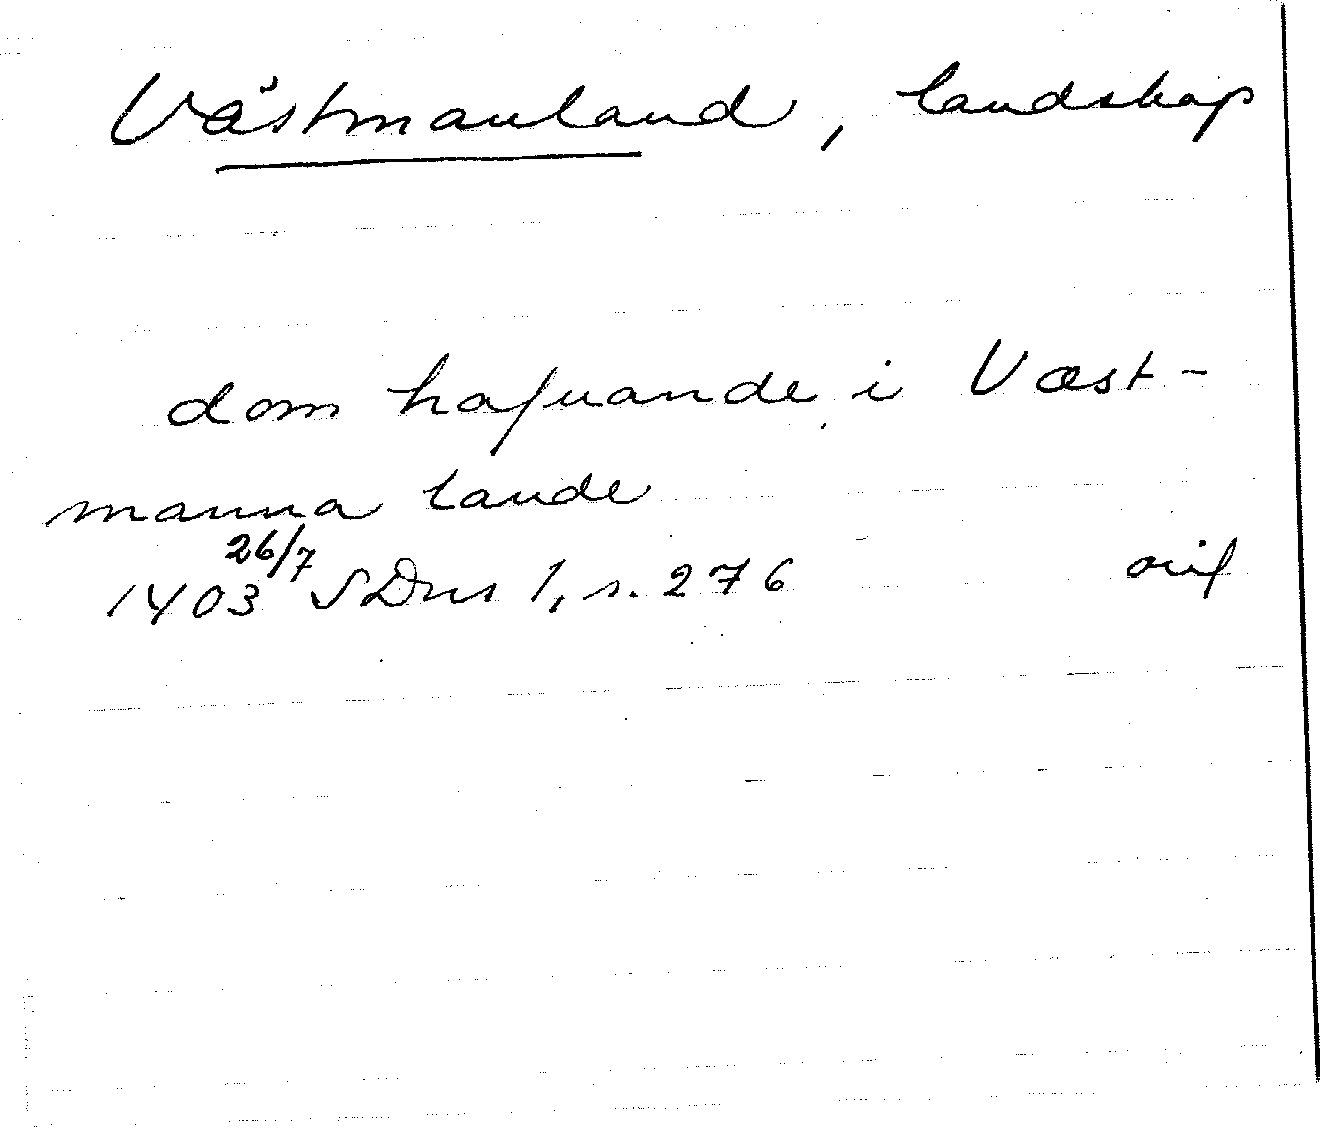 Västmanland, landskap
dom hafuande i Væst-
manna lande
1403 26/7 SDns 1, s. 276 orig